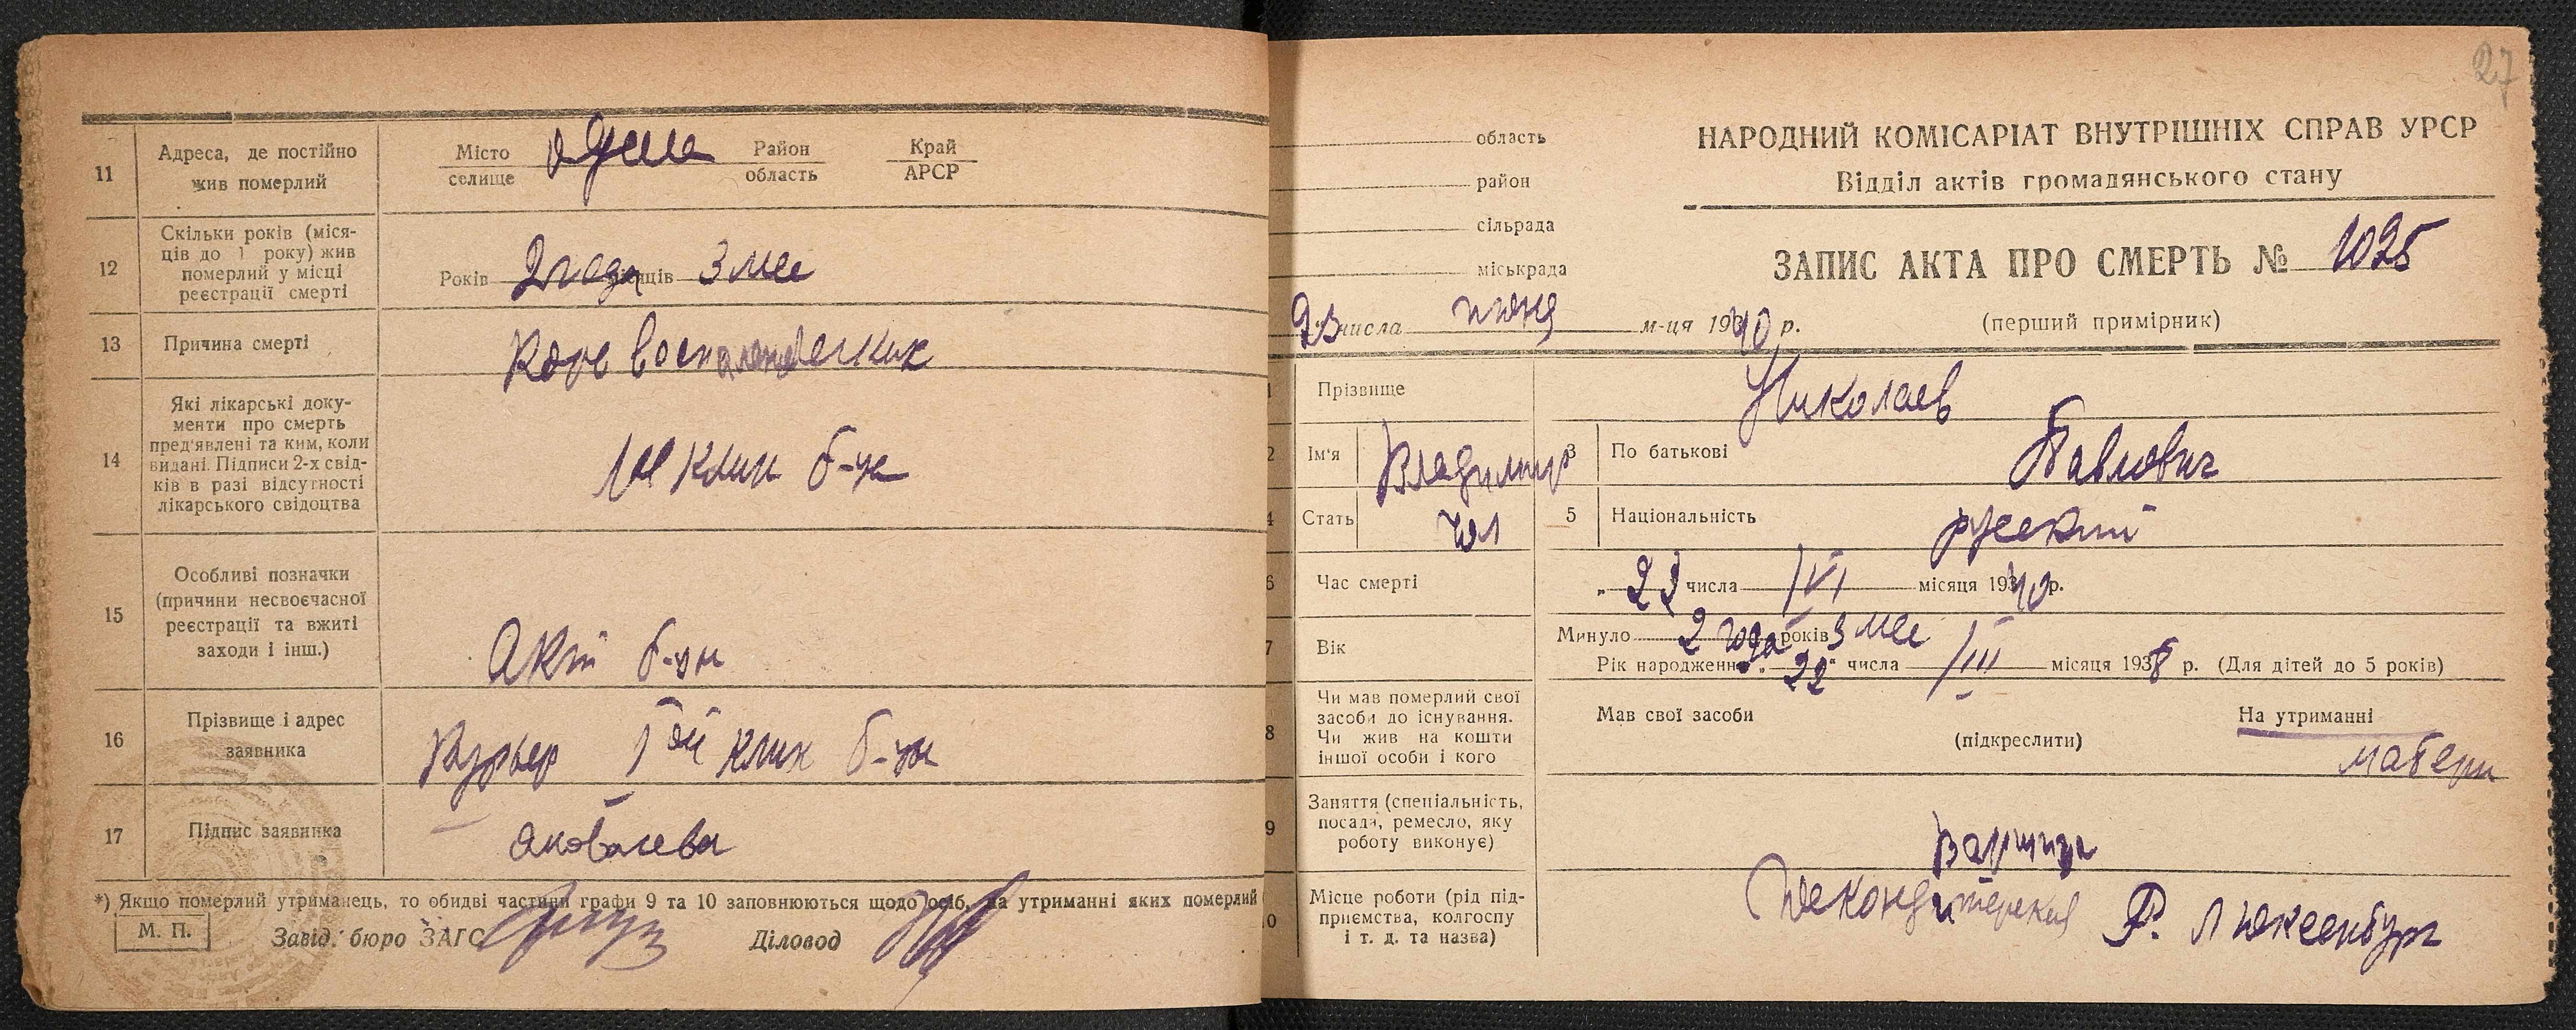 11
Адреса, де постійно
жив померлий
Місто
селище
Одесса
Район
область
Край
АРСР
12
Скільки років (міся-
ців до 1 року) жив
померлий у місці
реєстрації смерті
Років 2 года місяців 3 мес
13
Причина смерті
Корь воспаление легких
14
Які лікарські доку-
менти про смерть
пред'явлені та ким, коли
видані. Підписи 2-х свід-
ків в разі відсутності
лікарського свідоцтва
клин б-ца
15
Особливі позначки
(причини несвоєчасної
реєстрації та вжиті
заходи і інш.)
Акт б-цы
16
Прізвище і адрес
заявника
Курьер 1ой клин б-цы
17
Підпис заявника
Яковлева
*) Якщо померлий утриманець, то обидві частини графи 9 та 10 заповнюються щодо осіб, на утриманні яких померлий
М. П.
Завід. бюро ЗАГС
Діловод
27
область
район
сільрада
міськрада
НАРОДНИЙ КОМІСАРІАТ ВНУТРІШНІХ СПРАВ УРСР
Відділ актів громадянського стану
ЗАПИС АКТА ПРО СМЕРТЬ № 1025
(перший примірник)
23 числа июня м-ця 1940 р.
1
Прізвище
Николаев
2
Ім'я
Владимир
3
По батькові
Павлович
4
Стать
чол
5
Національність
русский
6
Час смерті
„ 23 числа VI місяця 1940 р.
7
Вік
Минуло 2 года років 3 мес
Рік народження „ 22 " числа III місяця 1938 р. (Для дітей до 5 років)
8
Чи мав померлий свої
засоби до існування.
Чи жив на кошти
іншої особи і кого
Мав свої засоби
(підкреслити)
На утриманні
матери
9
Заняття (спеціальність,
посада, ремесло, яку
роботу виконує)
10
Місце роботи (рід під-
приємства, колгоспу
і т. д. та назва)
Р. Люксенбург